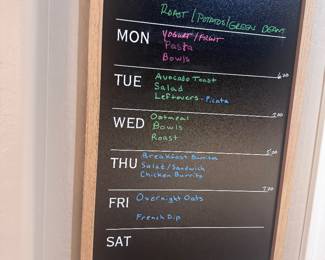 ROAST / POTATOS / GREEN BEANS
MON YOGURT / FRUIT
Pasta
Bowls
6:00
TUE Avocado Toast
Salad
Leftovers - Picata
7:00
WED Oatmeal
Bowls
Roast
5:00
THU Breakfast Burrito
Salad/Sandwich
Chicken Burrito
7:00
FRI Overnight Oats
French Dip
SAT